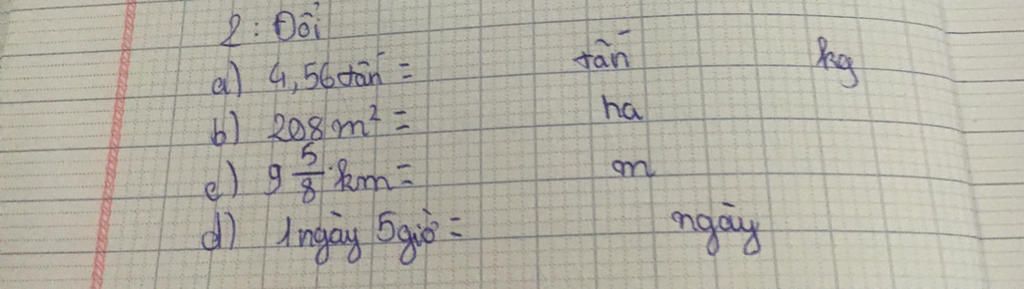 2: Đổi
a) 4,56 tấn = tấn kg
b) 208 m² = ha
c) 9 5/8 km = m
d) 1 ngày 5 giờ = ngày